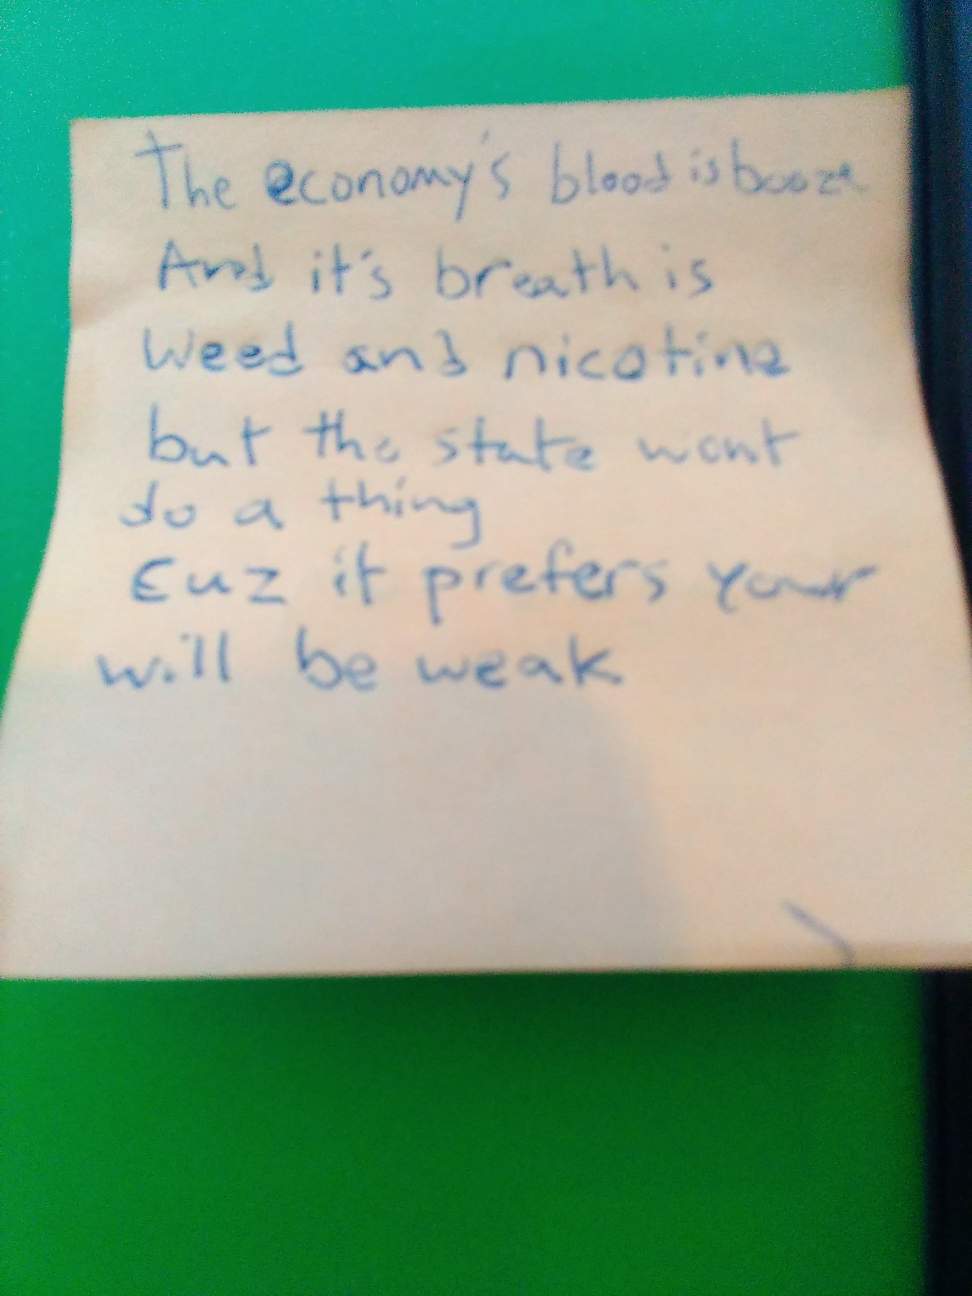 The economy's blood is booze
And it's breath is
Weed and nicotine
but the state wont
do a thing
Cuz it prefers your
will be weak